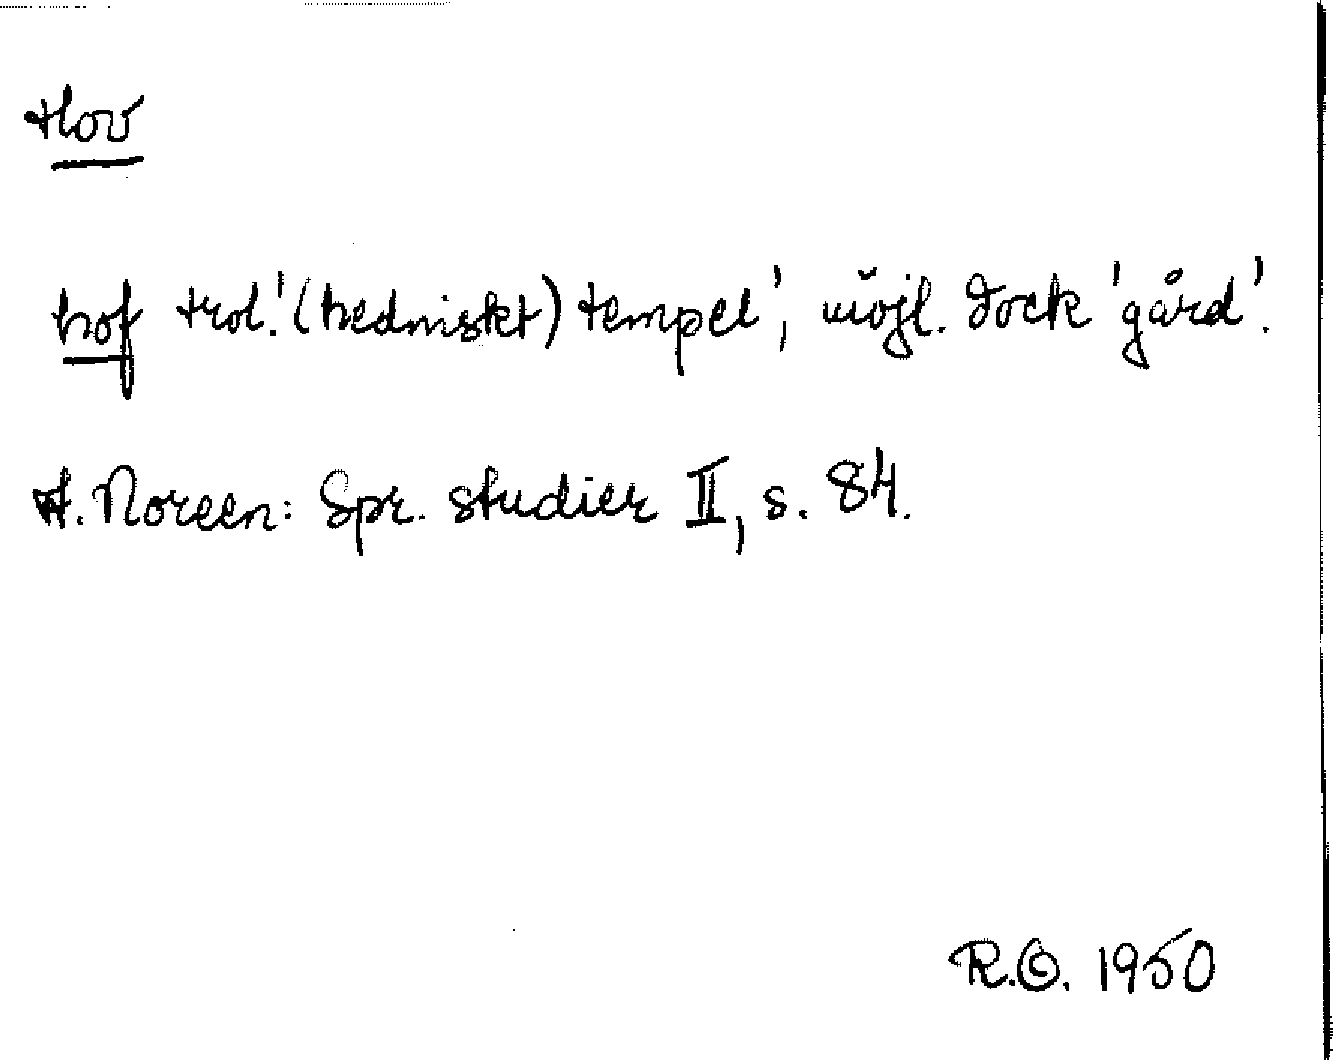 Hov
hof trol. '(hedniskt) tempel', möjl. dock 'gård'.
A. Noreen: Spr. studier II, s. 84.
R.O. 1950